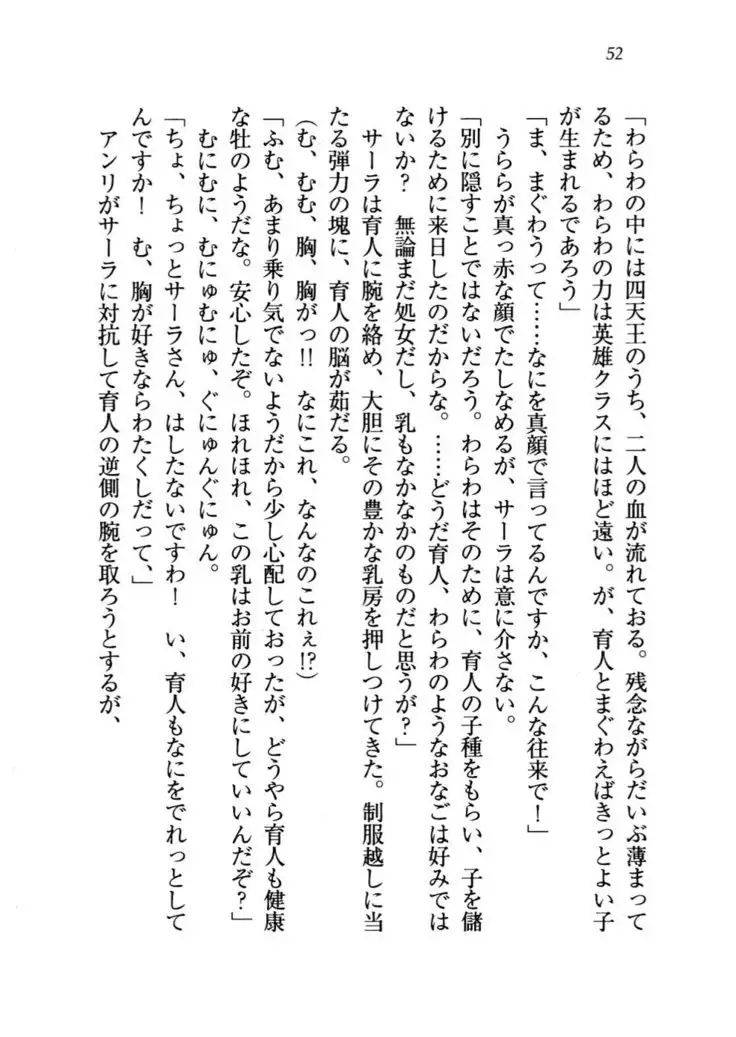 52
「わらわの中には四天王のうち、二人の血が流れておる。残念ながらだいぶ薄まって
るため、わらわの力は英雄クラスにはほど遠い。が、育人とまぐわえばきっとよい子
が生まれるであろう」
「ま、まぐわうって……なにを真顔で言ってるんですか、こんな往来で！」
　うららが真っ赤な顔でたしなめるが、サーラは意に介さない。
「別に隠すことではないだろう。わらわはそのために、育人の子種をもらい、子を儲
けるために来日したのだからな。……どうだ育人、わらわのようなおなごは好みでは
ないか？　無論まだ処女だし、乳もなかなかのものだと思うが？」
　サーラは育人に腕を絡め、大胆にその豊かな乳房を押しつけてきた。制服越しに当
たる弾力の塊に、育人の脳が茹だる。
(む、むむ、胸、胸がっ!!　なにこれ、なんなのこれぇ!?)
「ふむ、あまり乗り気でないようだから少し心配しておったが、どうやら育人も健康
な牡のようだな。安心したぞ。ほれほれ、この乳はお前の好きにしていいんだぞ？」
　むにむに、むにゅむにゅ、ぐにゅんぐにゅん。
「ちょ、ちょっとサーラさん、はしたないですわ！　い、育人もなにをでれっとして
んですか！　む、胸が好きならわたくしだって、」
　アンリがサーラに対抗して育人の逆側の腕を取ろうとするが、